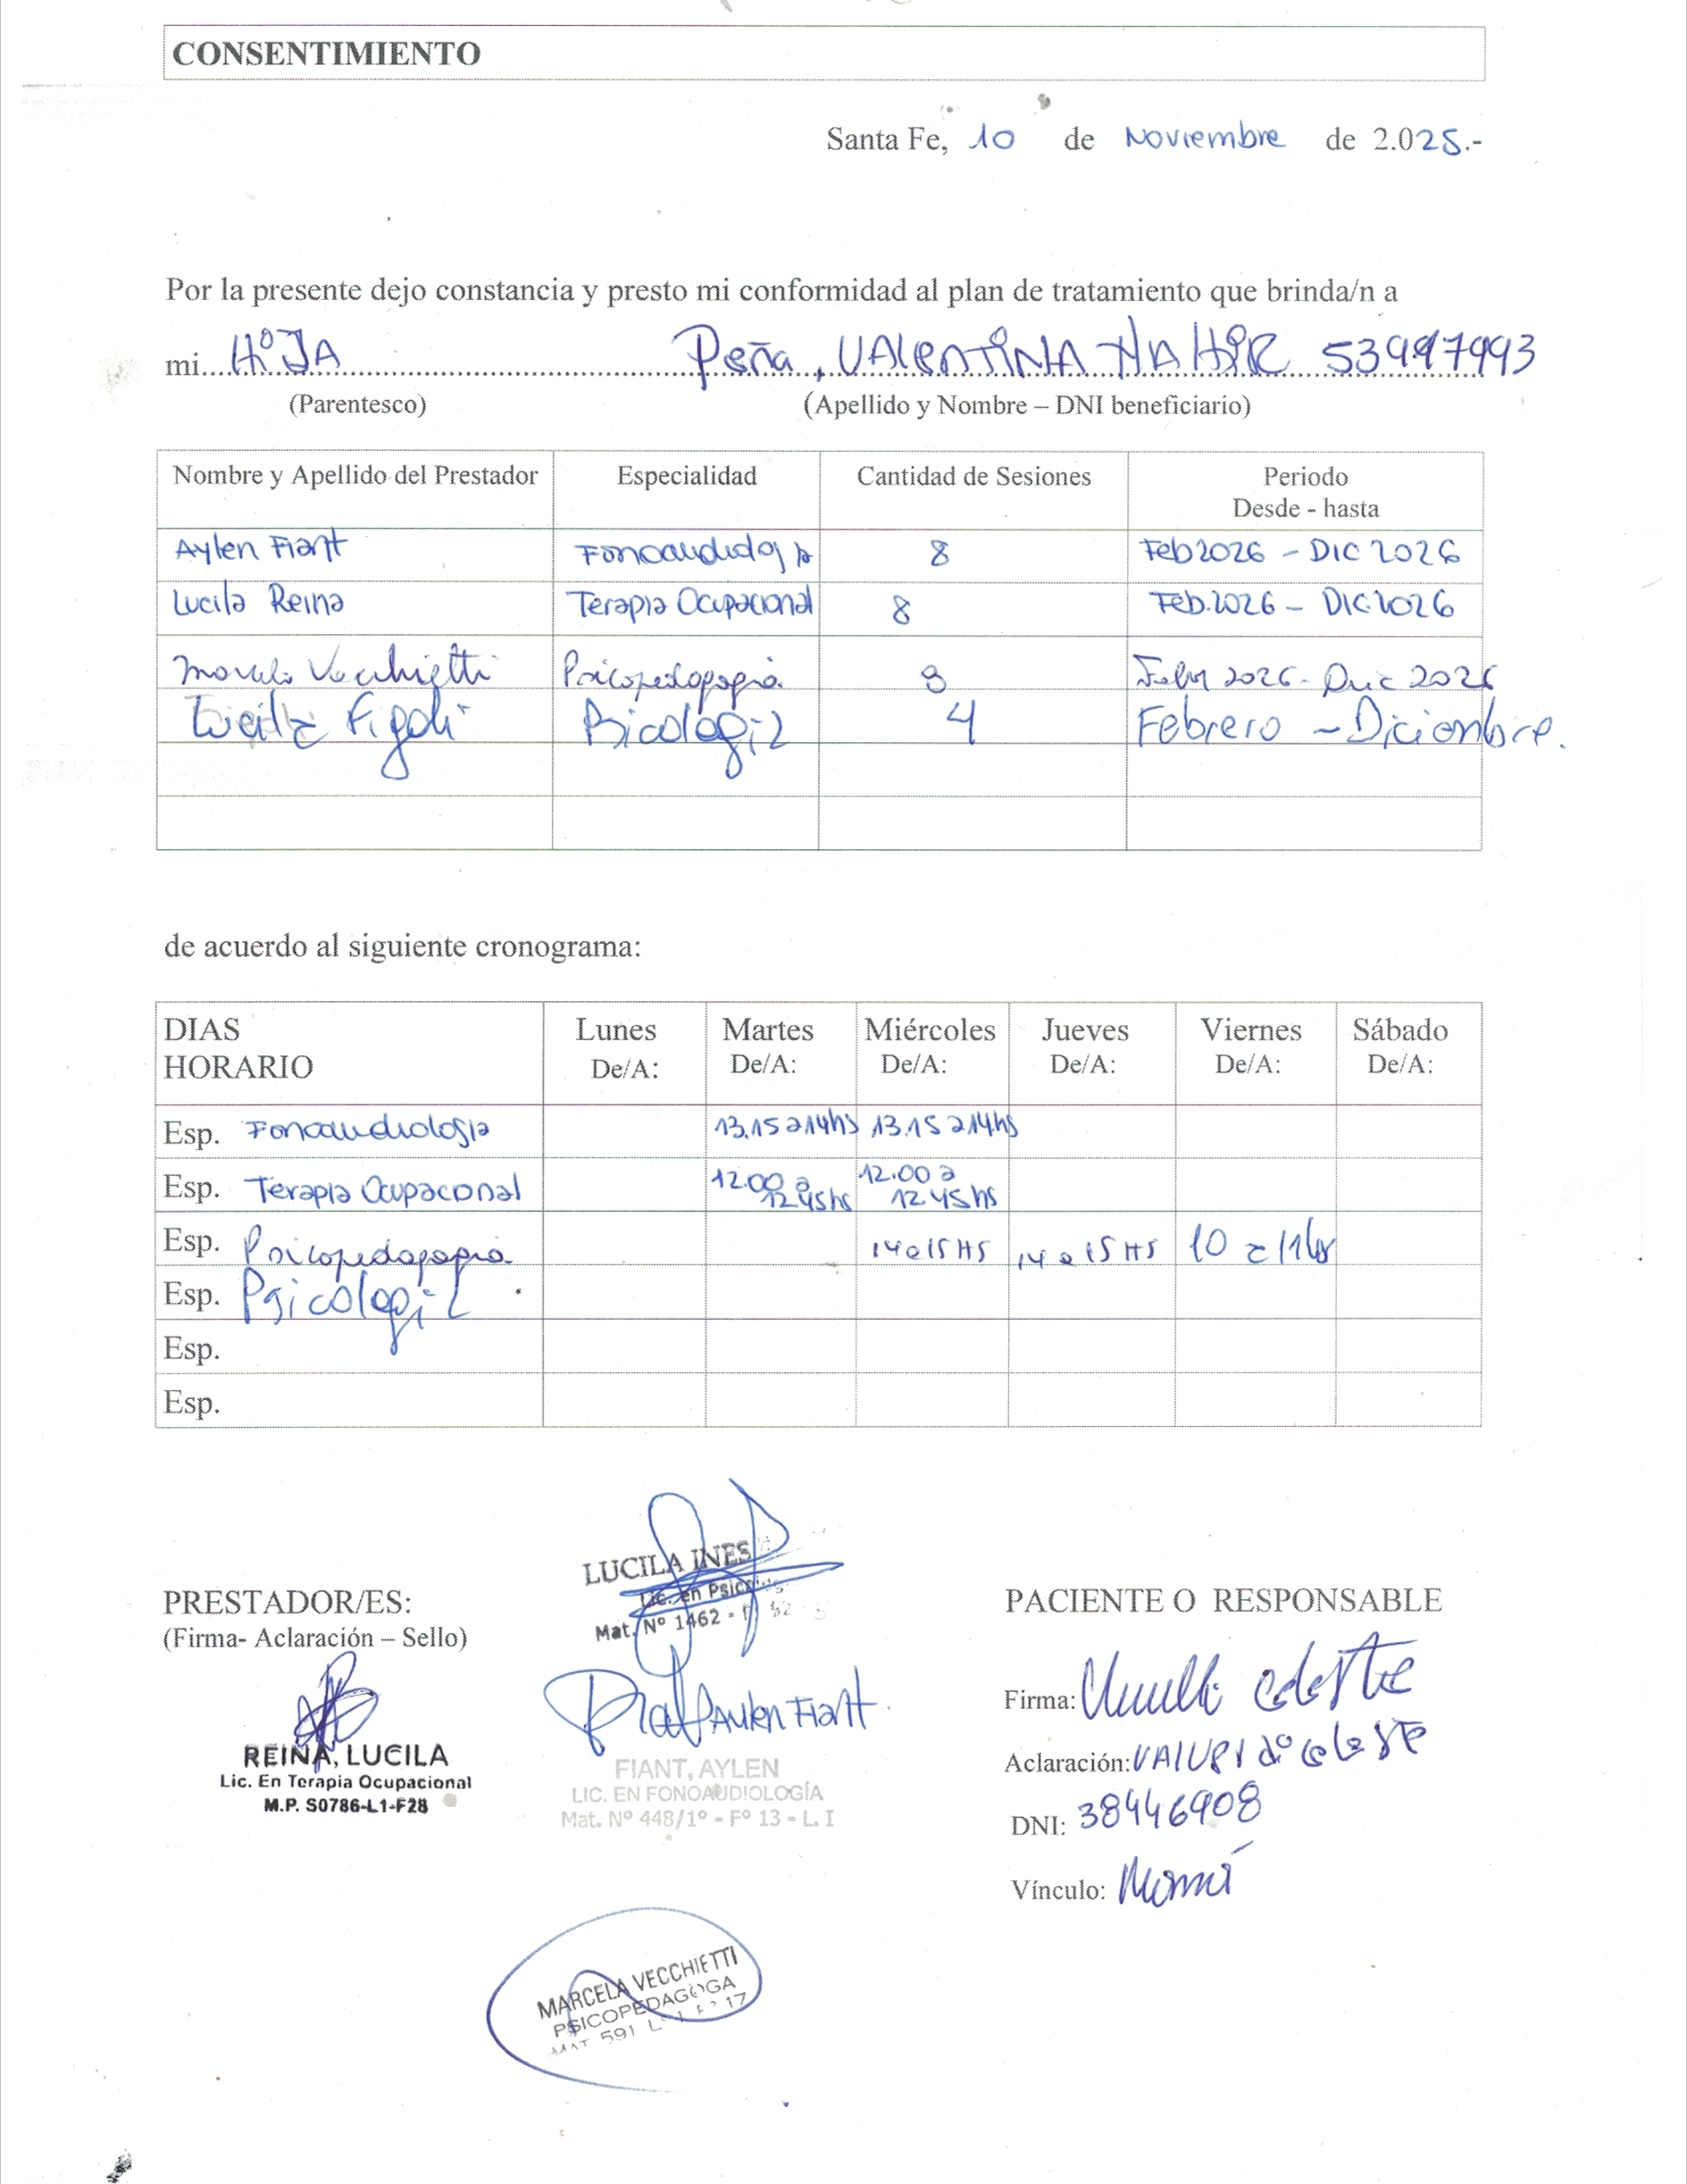 CONSENTIMIENTO
Santa Fe, 10 de Noviembre de 2.025.-
Por la presente dejo constancia y presto mi conformidad al plan de tratamiento que brinda/n a
mi...HiJA...Peña, VALENTINA NAHIR 53997993
(Parentesco) (Apellido y Nombre – DNI beneficiario)
Nombre y Apellido del Prestador Especialidad Cantidad de Sesiones Periodo
Desde - hasta
Aylen Fiant Fonoaudiología 8 Feb 2026 - DIC 2026
Lucila Reina Terapia Ocupacional 8 Feb.2026 - DIC.2026
Marcela Vecchietti Psicopedagogia 8 2026 - Dic 2026
Lucila Figoli Psicología 4 Febrero - Diciembre.
de acuerdo al siguiente cronograma:
DIAS Lunes Martes Miércoles Jueves Viernes Sábado
HORARIO De/A: De/A: De/A: De/A: De/A: De/A:
Esp. Fonoaudiología 13.15 a 14hs 13.15 a 14hs
Esp. Terapia Ocupacional 12.00 a 12.45hs 12.00 a 12.45hs
Esp. Psicopedagogia 14 a 15 HS 14 a 15 HS 10 a 11hs
Esp. Psicología
Esp.
Esp.
LUCILA INES
Lic. en Psico
Mat. Nº 1462
PRESTADOR/ES: PACIENTE O RESPONSABLE
(Firma- Aclaración – Sello)
Firma: Celeste
Aylen Fiant
REINA, LUCILA
Lic. En Terapia Ocupacional
M.P. S0786-L1-F28
FIANT, AYLEN
LIC. EN FONOAUDIOLOGÍA
Mat. Nº 448/1º - Fº 13 - L. I
Aclaración: Celeste
DNI: 38446908
Vínculo: Mamá
MARCELA VECCHIETTI
PSICOPEDAGOGA
MAT 591 L 1 Fº 17